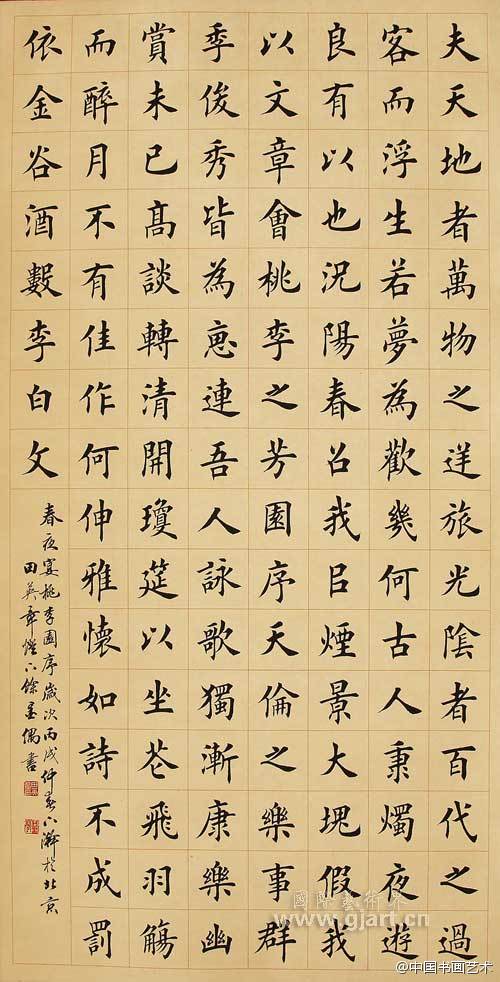 夫天地者萬物之逆旅光陰者百代之過
客而浮生若夢為歡幾何古人秉燭夜遊
良有以也況陽春召我㠯煙景大塊假我
以文章會桃李之芳園序天倫之樂事群
季俊秀皆為惠連吾人詠歌獨慚康樂幽
賞未已高談轉清開瓊筵以坐花飛羽觴
而醉月不有佳作何伸雅懷如詩不成罰
依金谷酒數李白文
春夜宴桃李園序歲次丙戌仲春下澣於北京
田英章燈下餘墨偶書
國際藝術界
www.gjart.cn
@中国书画艺术